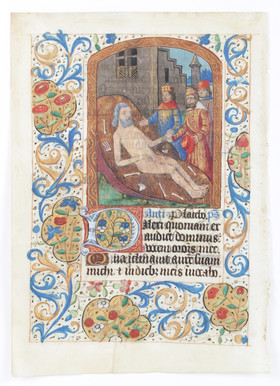 Anti Placebo ps
Dilexi quoniam ex
audiet dominus
vocem oronis mee
Quia inclinauit aurem suam
michi et in diebus meis inuocabo